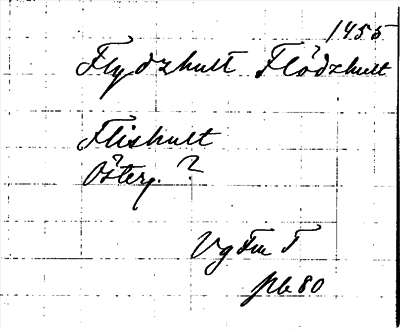 1455
Flydzhult Flödzhult
Flishult
Österg. ?
Vg Fm T
pb 80